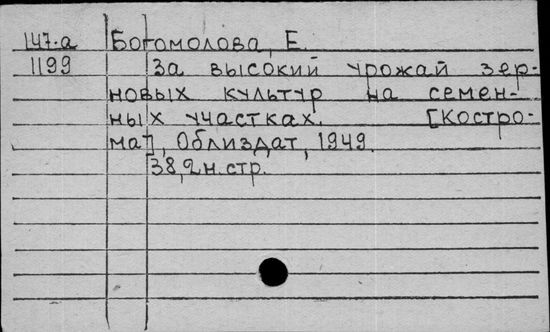 147-а Богомолова, Е.
1199 За высокий урожай зер-
новых культур на семен-
ных участках. [Костро-
ма], Облиздат, 1949.
38,2н.стр.